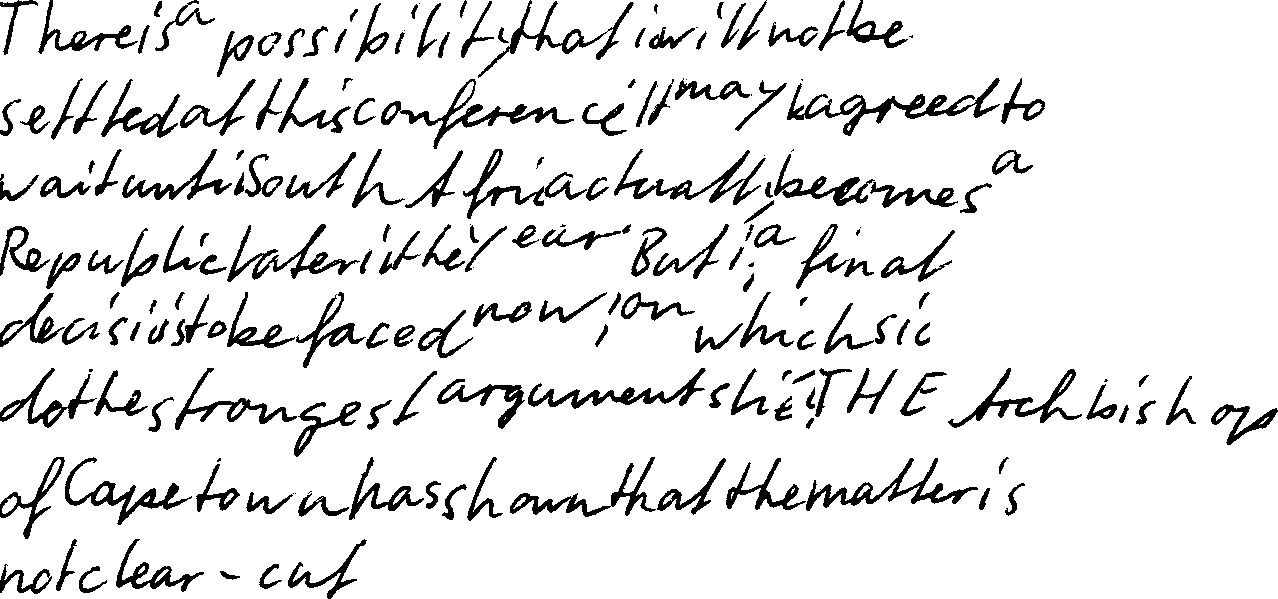 There is a possibility that it will not be
settled at this conference. It may be agreed to
wait until South Africa actually becomes a
Republic later in the year. But if a final
decision is to be faced now, on which side
do the strongest arguments lie? THE Archbishop
of Capetown has shown that the matter is
not clear-cut